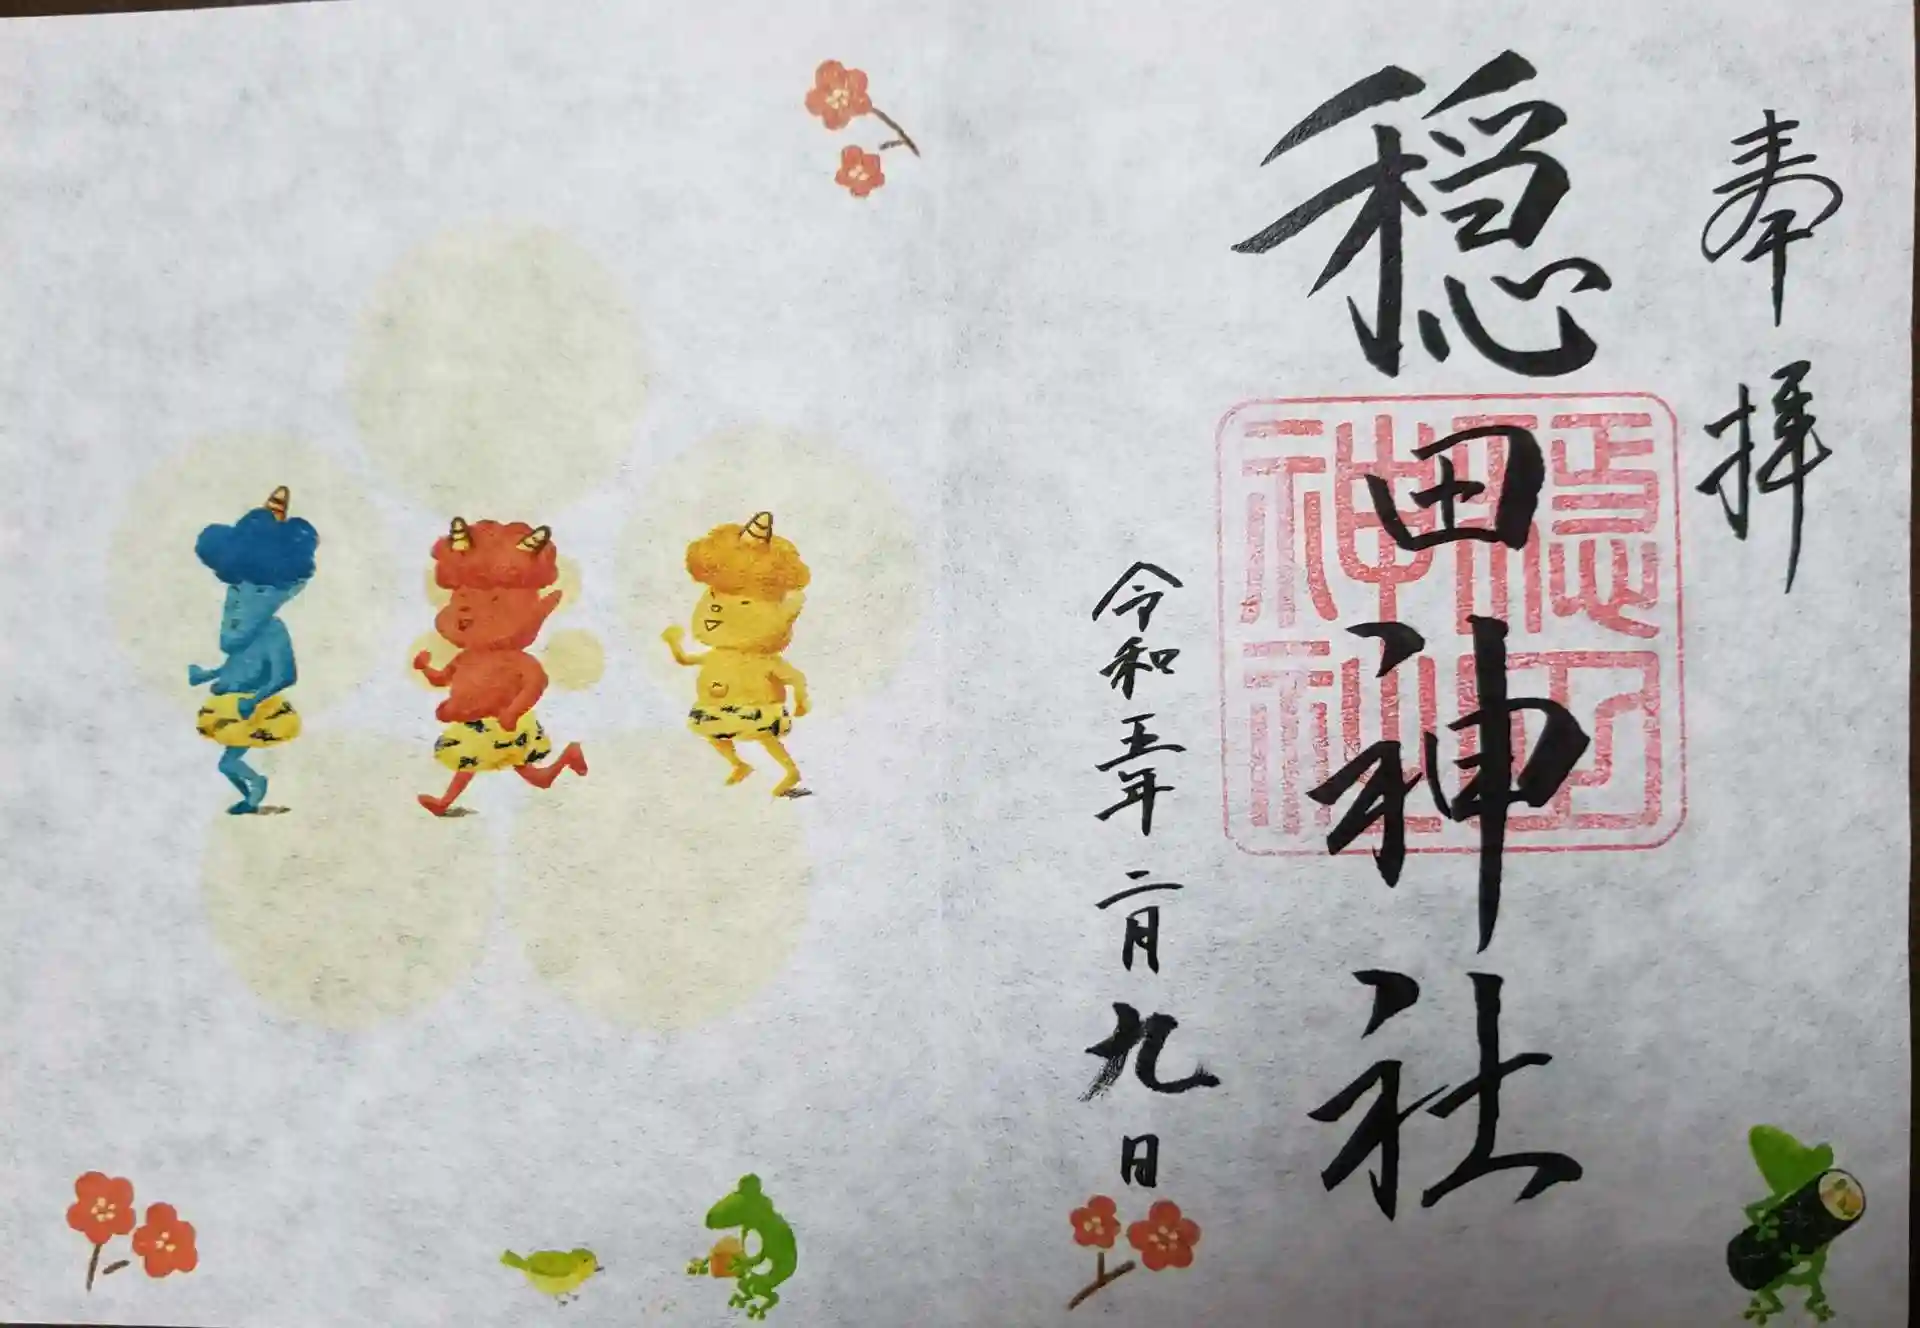 奉拝
穏田神社
穏田神社
令和五年二月九日